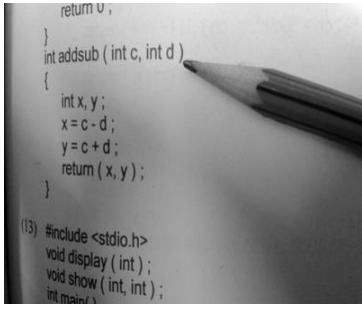 return 0 ;
}
int addsub ( int c, int d )
{
int x, y ;
x = c - d ;
y = c + d ;
return ( x, y ) ;
}
(13) #include <stdio.h>
void display ( int ) ;
void show ( int, int ) ;
int main( )